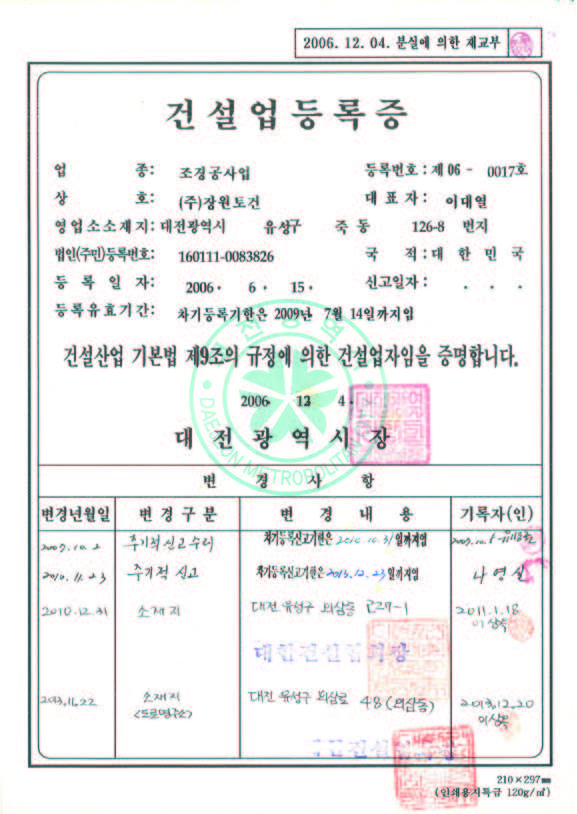 2006. 12. 04. 분실에 의한 재교부
건설업등록증
업 종: 조경공사업 등록번호 : 제 06 - 0017호
상 호: (주)장원토건 대 표 자 : 이대열
영업소소재지: 대전광역시 유성구 죽 동 126-8 번지
법인(주민)등록번호: 160111-0083826 국 적 : 대 한 민 국
등 록 일 자: 2006 . 6 . 15 . 신고일자 : . . .
등록유효기간: 차기등록기한은 2009년 7월 14일까지임
건설산업 기본법 제9조의 규정에 의한 건설업자임을 증명합니다.
2006. 12 4 .
대 전 광 역 시 장
변 경 사 항
변경년월일 변 경 구 분 변 경 내 용 기록자(인)
2009. 10. 2 주기적신고수리 차기등록신고기한은 2010. 10. 31 일까지임
2010. 11. 23 주기적 신고 차기등록신고기한은 2013. 12. 23 일까지임 나영실
2010. 12. 31 소재지 대전 유성구 외삼동 627-1 2011. 1. 18
2013. 11. 22 소재지 <도로명주소> 대전 유성구 외삼로 48 (외삼동) 2013. 12. 20
210×297㎜
(인쇄용지특급 120g/㎡)